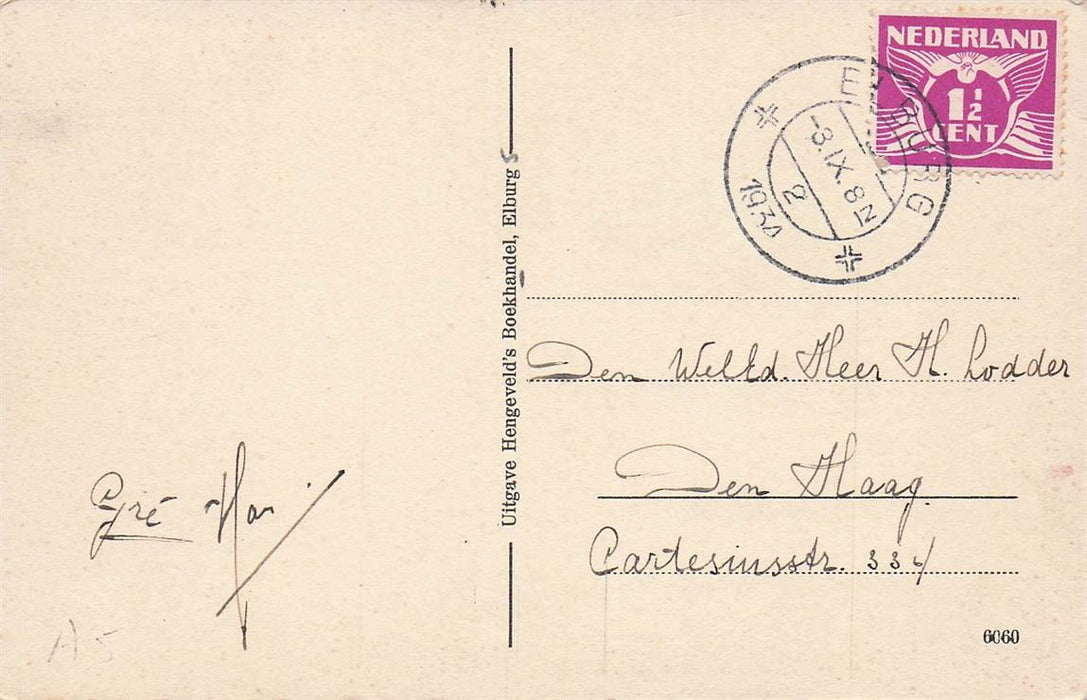 NEDERLAND
1½
CENT
ELBURG
-3.IX.8
1934
Uitgave Hengeveld's Boekhandel, Elburg
Den WelEd. Heer H. Lodder
Den Haag.
Cartesiusstr. 334
Gré
A5
6060